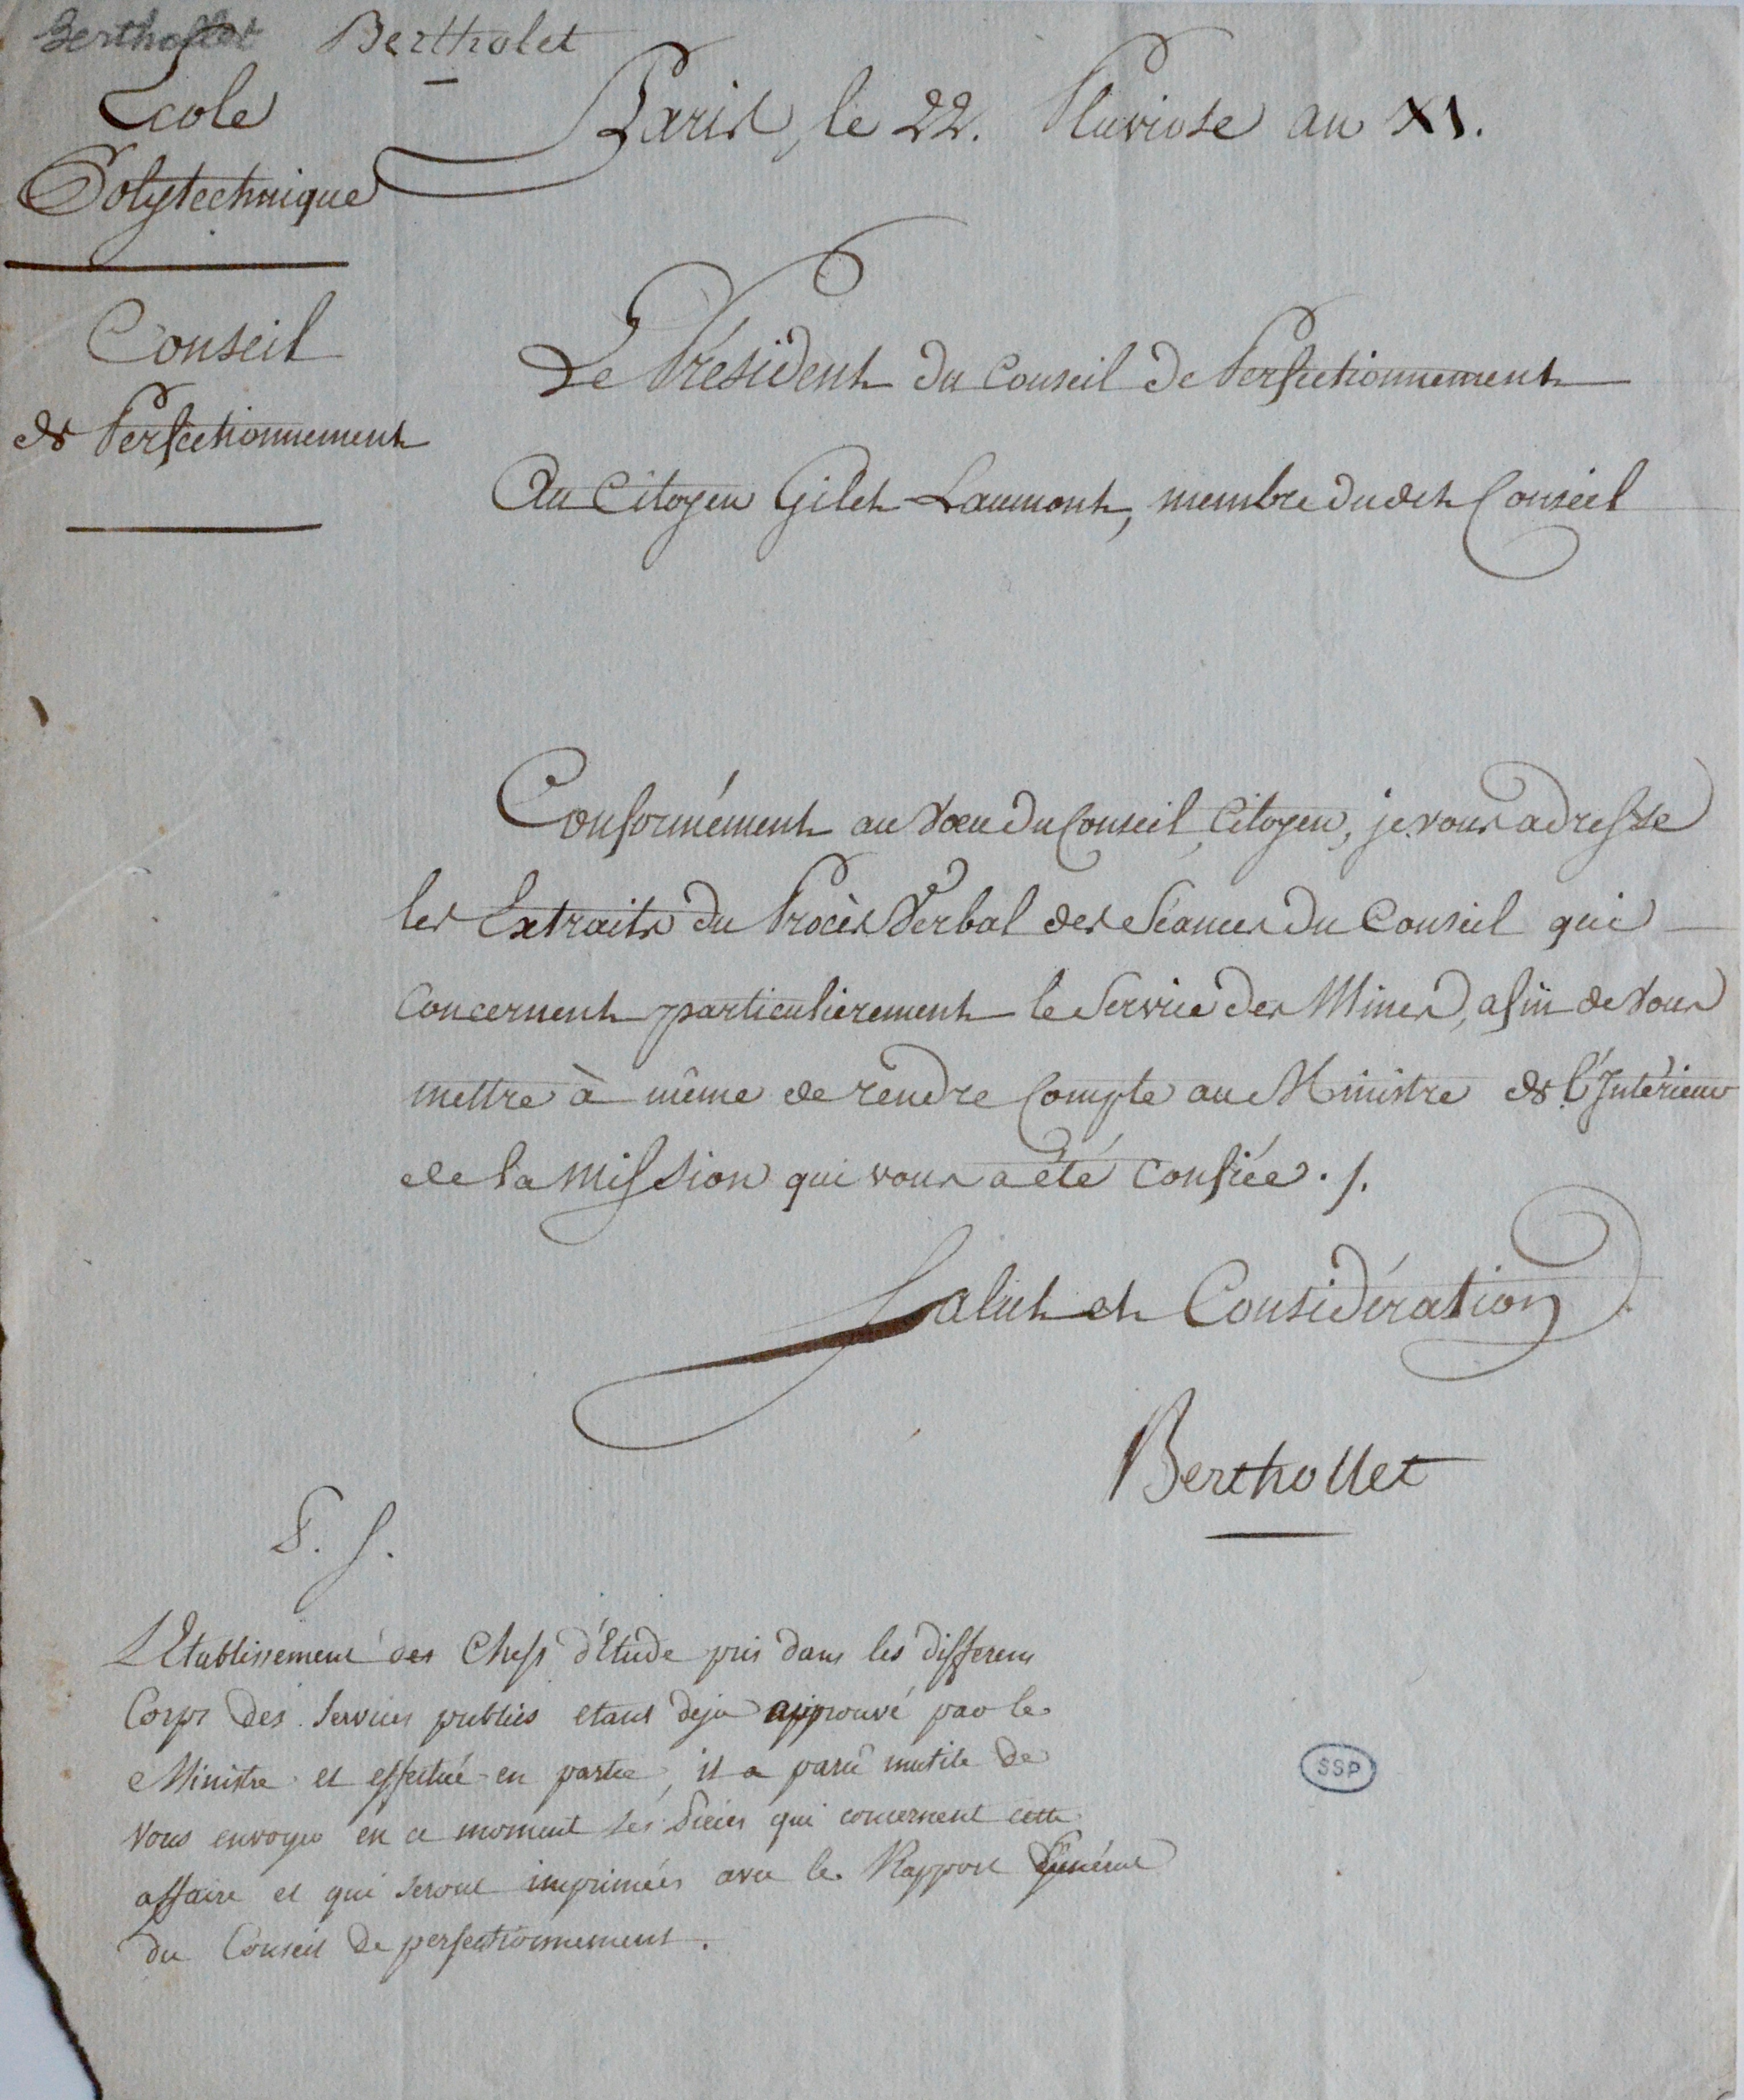 Berthollet Bertholet
Ecole
Polytechnique
Paris, le 22. Pluviose an XI.
Conseil
de Perfectionnement
Le Président du Conseil de Perfectionnement
Au Citoyen Gilet-Laumont, membre dudit Conseil
Conformément au Vœu du Conseil, Citoyen, je vous adresse
les Extraits du Procès Verbal des Séances du Conseil qui
concernent particulierement le Service des Mines, afin de Vous
mettre à même de rendre Compte au Ministre de l'Intérieur
de la Mission qui vous a été Confiée ./.
Salut et Considération
Berthollet
P. S.
L'Etablissement des Chefs d'Etude pris dans les differens
Corps des Services publics etant deja approuvé par le
Ministre et effectué en partie, il a parû inutile de
Vous envoyer en ce moment les Pieces qui concernent cette
affaire et qui seront imprimées avec le Rapport Général
du Conseil de perfectionnement.
SSP